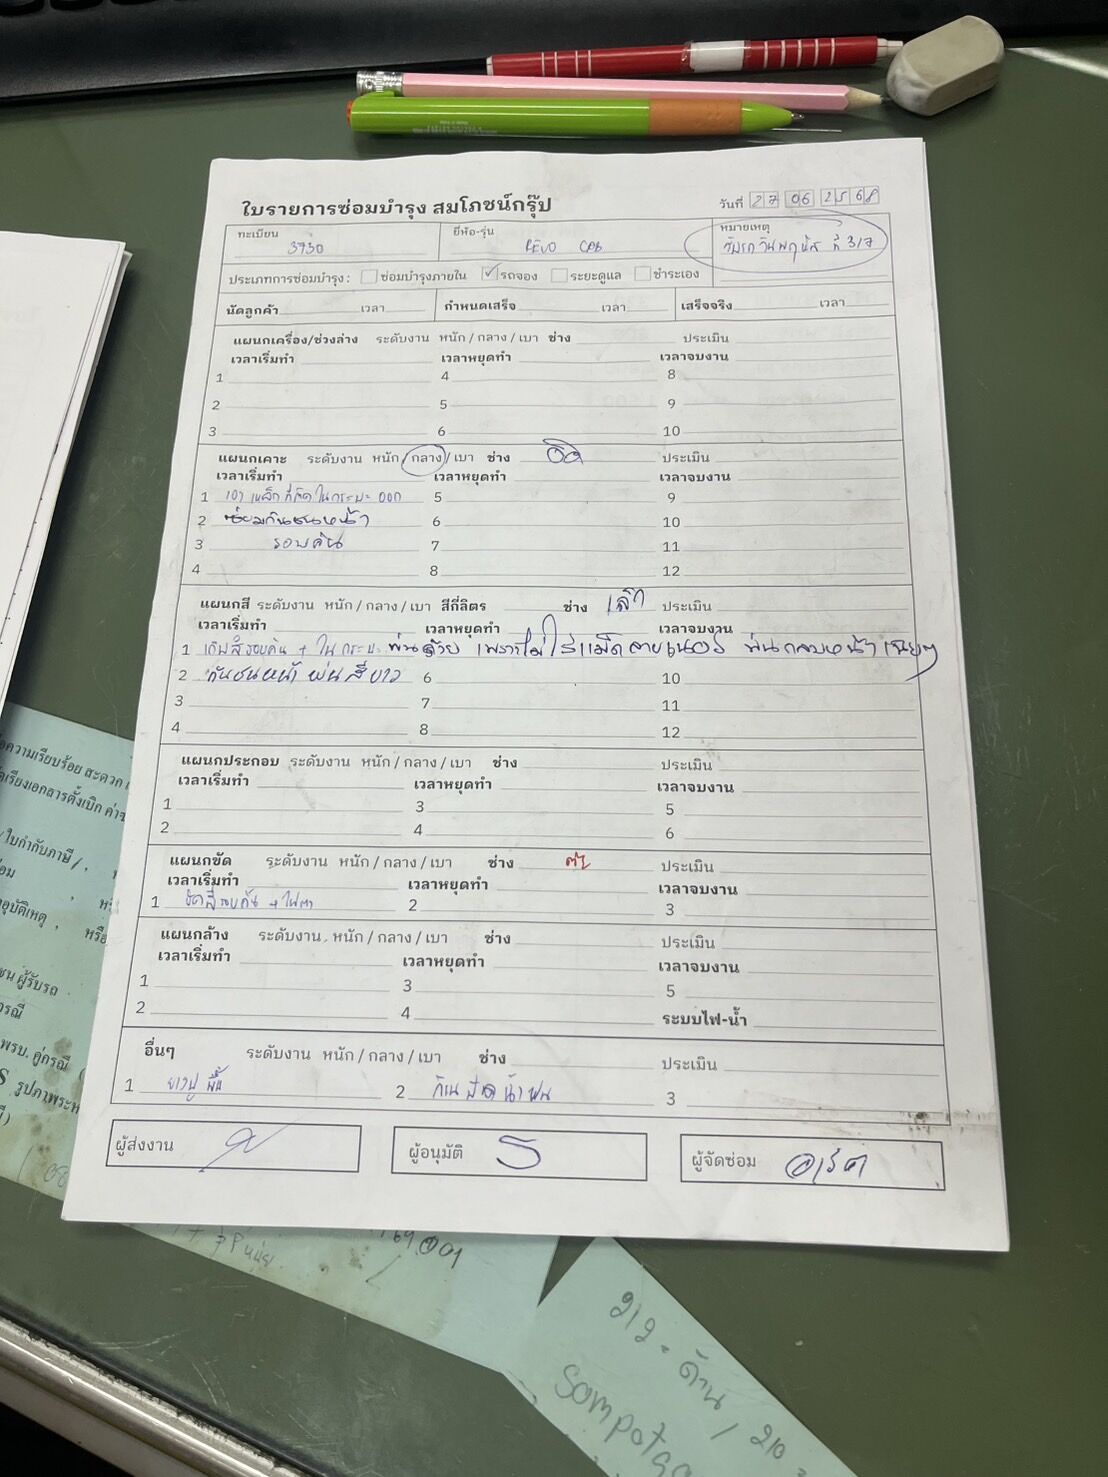 ใบรายการซ่อมบำรุง สมโภชน์กรุ๊ป
วันที่ 27 06 2568
ทะเบียน 3930 ยี่ห้อ-รุ่น REVO CAB หมายเหตุ
รับรถวันพฤหัส ที่ 3/7
ประเภทการซ่อมบำรุง : ซ่อมบำรุงภายใน ✓ รถจอง ระยะดูแล ชำระเอง
นัดลูกค้า เวลา กำหนดเสร็จ เวลา เสร็จจริง เวลา
แผนกเครื่อง/ช่วงล่าง ระดับงาน หนัก / กลาง / เบา ช่าง ประเมิน
เวลาเริ่มทำ เวลาหยุดทำ เวลาจบงาน
1 4 8
2 5 9
3 6 10
แผนกเคาะ ระดับงาน หนัก / กลาง / เบา ช่าง ประเมิน
เวลาเริ่มทำ เวลาหยุดทำ เวลาจบงาน
1 เอาเหล็กที่ติดในกระบะออก 5 9
2 ซ่อมกันชนหน้า 6 10
3 รอบคัน 7 11
4 8 12
แผนกสี ระดับงาน หนัก / กลาง / เบา สีกี่ลิตร ช่าง เล็ก ประเมิน
เวลาเริ่มทำ เวลาหยุดทำ เวลาจบงาน
1 เก็บสีรอบคัน + ในกระบะ พ่นด้วย เพราะไม่ใส่แม็คลายเนอร์ พ่นกลบหน้าเฉยๆ
2 กันชนหน้า พ่นสีขาว 6 10
3 7 11
4 8 12
แผนกประกอบ ระดับงาน หนัก / กลาง / เบา ช่าง ประเมิน
เวลาเริ่มทำ เวลาหยุดทำ เวลาจบงาน
1 3 5
2 4 6
แผนกขัด ระดับงาน หนัก / กลาง / เบา ช่าง ประเมิน
เวลาเริ่มทำ เวลาหยุดทำ เวลาจบงาน
1 ขัดสีรอบคัน + ไฟตา 2 3
แผนกล้าง ระดับงาน หนัก / กลาง / เบา ช่าง ประเมิน
เวลาเริ่มทำ เวลาหยุดทำ เวลาจบงาน
1 3 5
2 4 ระบบไฟ-น้ำ
อื่นๆ ระดับงาน หนัก / กลาง / เบา ช่าง ประเมิน
1 ยางปูพื้น 2 ก้านปัดน้ำฝน 3
ผู้ส่งงาน ผู้อนุมัติ ผู้จัดซ่อม
อความเรียบร้อย สะดวก
เรียงเอกสารตั้งเบิก
ใบกำกับภาษี/,
อุบัติเหตุ , หรือ
ผู้รับรถ
พรบ. คู่กรณี
รูปภาพระห
001
212 - ด้าน / 210